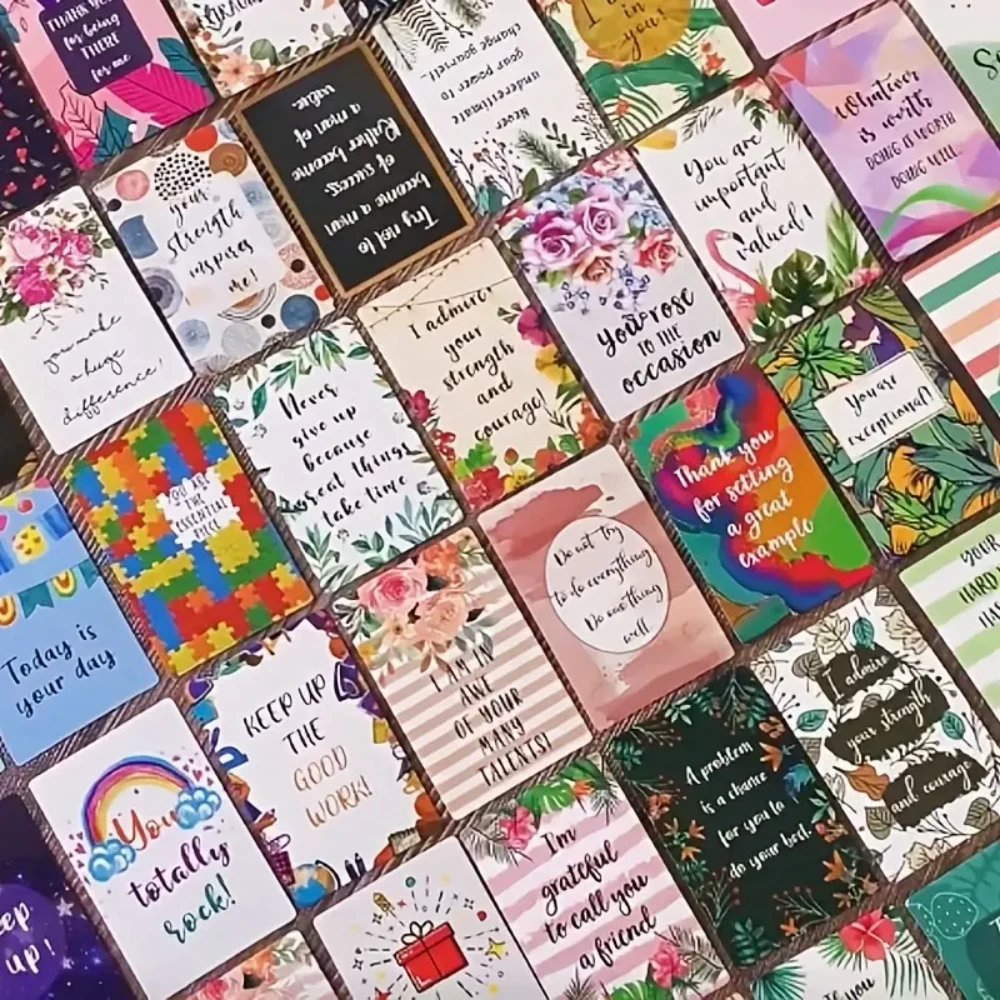 THANK YOU
for being
THERE
for me
in
you!
Never
underestimate
your power to
change yourself.
Whatever
is worth
DOING IT WORTH
DOING WELL.
Try not to
become a man
of success.
Rather become
a man of
value.
You are
important
and
valued!
your
strength
inspires
me!
you make
a huge
difference!
I admire
your
strength
and
courage!
You rose
TO THE
occasion
You are
exceptional!
Never
give up
because
great things
take time
Thank you
for setting
a great
example
YOU ARE
THE
ESSENTIAL
PIECE
Do not try
to do everything
Do one thing
well.
YOUR
HARD
Today is
your day
KEEP UP
THE
GOOD
WORK!
I AM IN
AWE
OF YOUR
MANY
TALENTS!
A problem
is a chance
for you to
do your best.
I admire
your strength
and courage
You
totally
rock!
I'm
grateful
to call you
a friend
up!
you